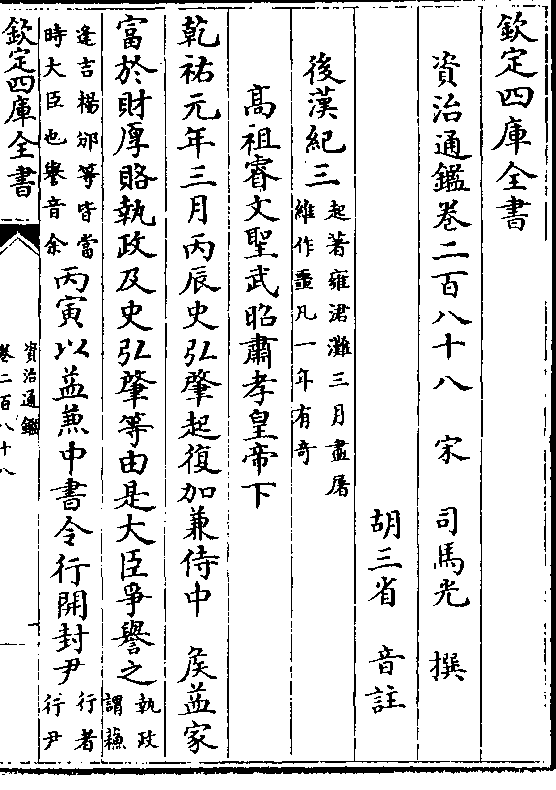 欽定四庫全書
資治通鑑卷二百八十八 宋 司馬光 撰
胡三省 音註
後漢紀三 起著雍涒灘三月盡屠
維作噩凡一年有奇
高祖睿文聖武昭肅孝皇帝下
乾祐元年三月丙辰史弘肇起復加兼侍中 侯益家
富於財厚賂執政及史弘肇等由是大臣爭譽之 執政
謂蘓
逢吉楊邠等皆當
時大臣也譽音余
丙寅以益兼中書令行開封尹 行者
行尹
欽定四庫全書
資治通鑑
卷二百八十八